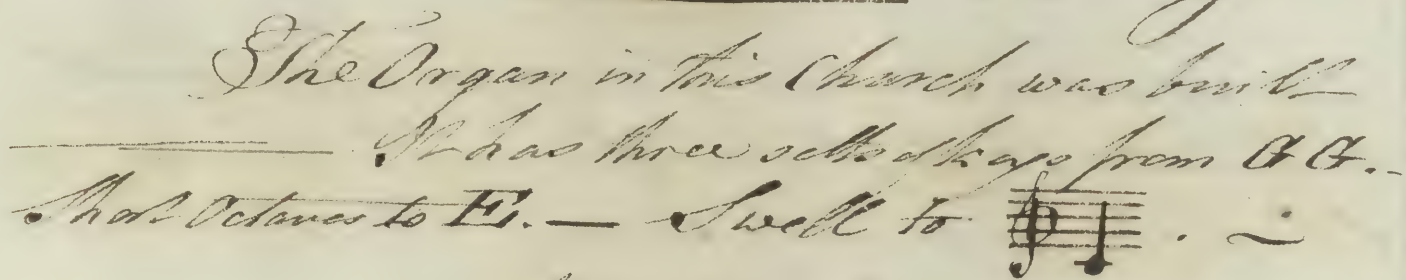 The Organ in this Church was built
It has three setts of keys from GG.
Short Octaves to E. — Swell to